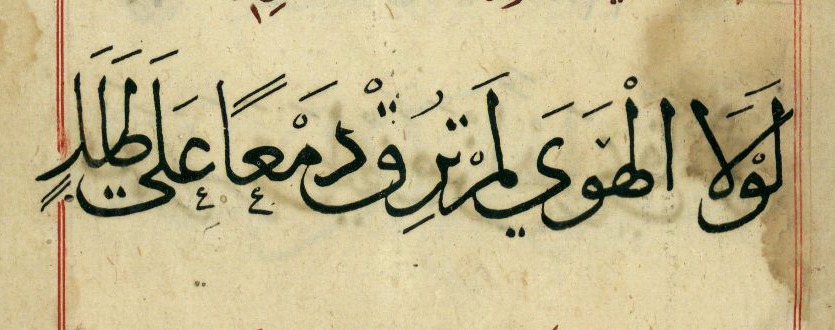 لَوْلَا الْهَوَي لَمْ تُرِقْ دَمْعًا عَلَي طَلَلٍ